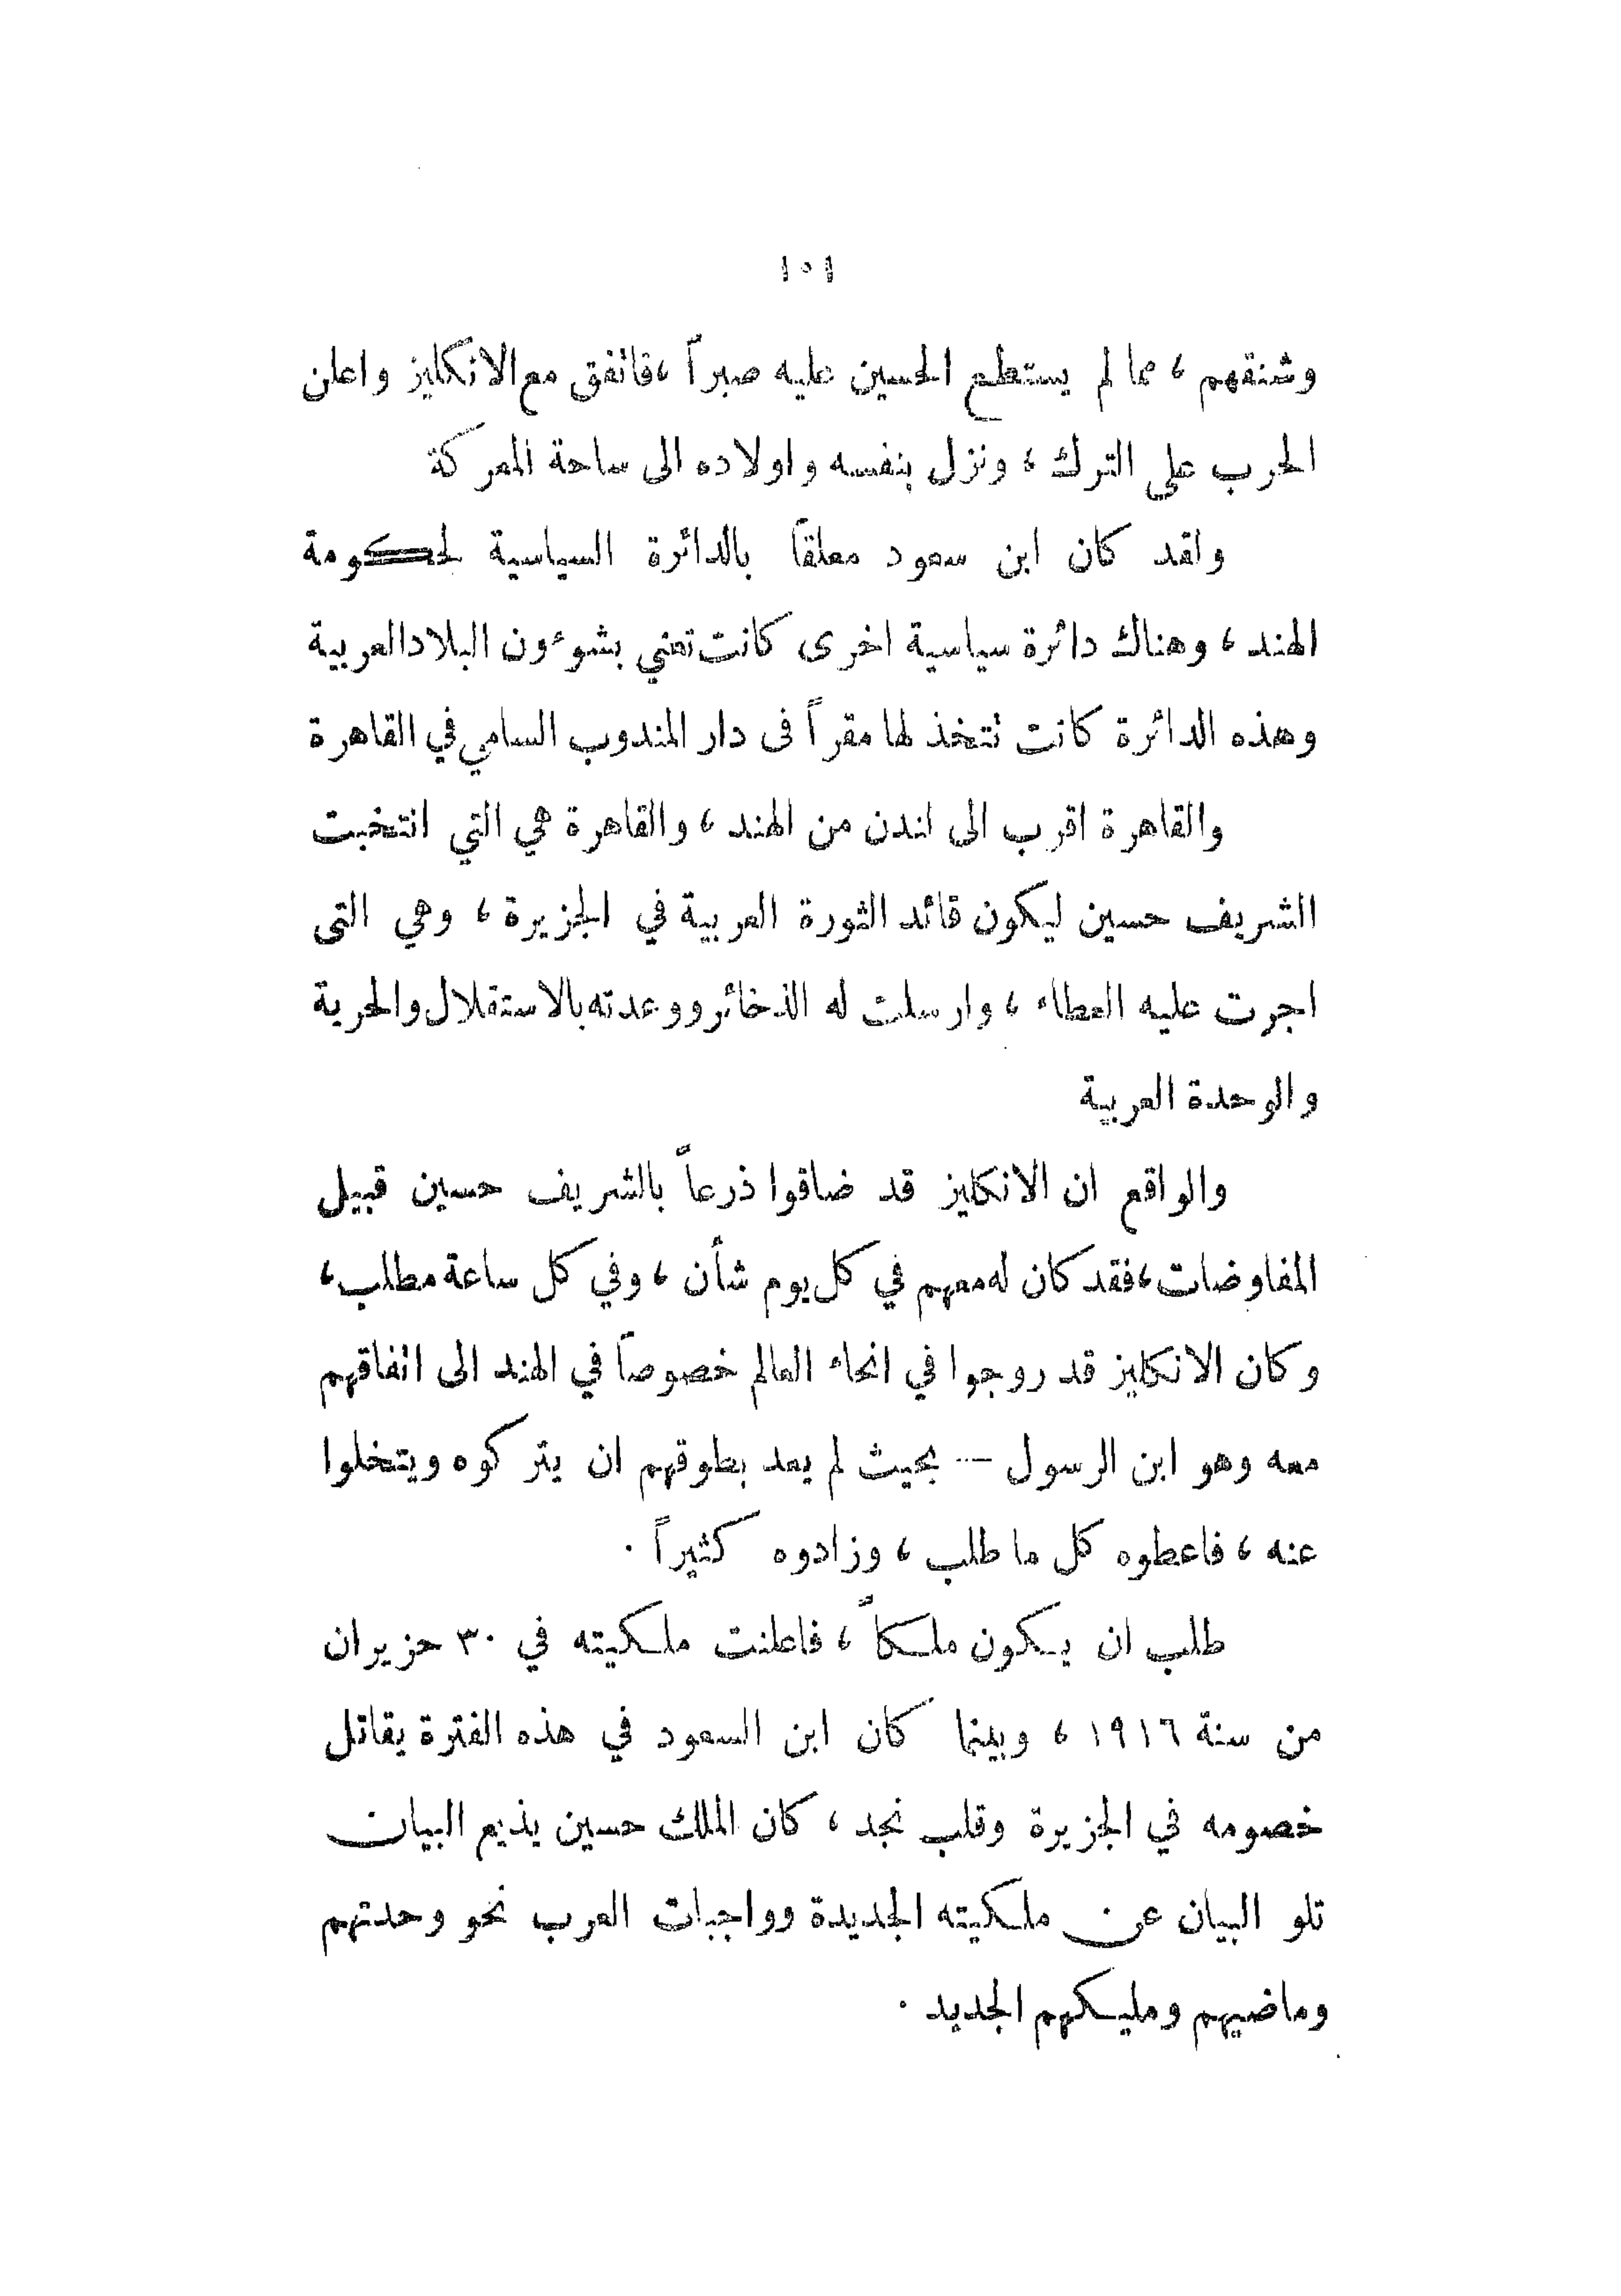 ١٥١
وشنقهم ، مما لم يستطع الحسين عليه صبراً ، فاتفق مع الانكليز واعلن
الحرب على الترك ، ونزل بنفسه واولاده الى ساحة المعركة
ولقد كان ابن سعود معلقاً بالدائرة السياسية لحكومة
الهند ، وهناك دائرة سياسية اخرى كانت تعني بشوءون البلاد العربية
وهذه الدائرة كانت تتخذ لها مقراً فى دار المندوب السامي في القاهرة
والقاهرة اقرب الى لندن من الهند ، والقاهرة هي التي انتخبت
الشريف حسين ليكون قائد الثورة العربية في الجزيرة ، وهي التى
اجرت عليه العطاء ، وارسلت له الذخائر ووعدته بالاستقلال والحرية
والوحدة العربية
والواقع ان الانكليز قد ضاقوا ذرعاً بالشريف حسين قبيل
المفاوضات ، فقد كان له معهم في كل يوم شأن ، وفي كل ساعة مطلب ،
وكان الانكليز قد روجوا في انحاء العالم خصوصاً في الهند الى اتفاقهم
معه وهو ابن الرسول — بحيث لم يعد بطوقهم ان يتركوه ويتخلوا
عنه ، فاعطوه كل ما طلب ، وزادوه كثيراً .
طلب ان يكون ملكاً ، فاعلنت ملكيته في ٣٠ حزيران
من سنة ١٩١٦ ، وبينما كان ابن السعود في هذه الفترة يقاتل
خصومه في الجزيرة وقلب نجد ، كان الملك حسين يذيع البيان
تلو البيان عن ملكيته الجديدة وواجبات العرب نحو وحدتهم
وماضيهم ومليكهم الجديد .